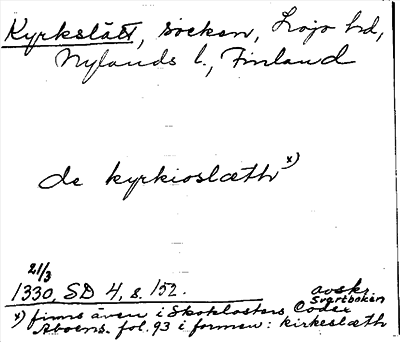 Kyrkslätt, socken, Lojo hd,
Nylands l., Finland
de kyrkioslæth x)
21/3
1330, SD 4, s. 152.
avskr.
Svartboken
x) finns även i Skoklosters Codex
Aboens. fol. 93 i formen: kirkeslæth